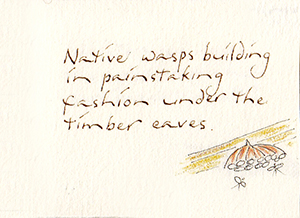 Native wasps building
in painstaking
fashion under the
timber eaves.